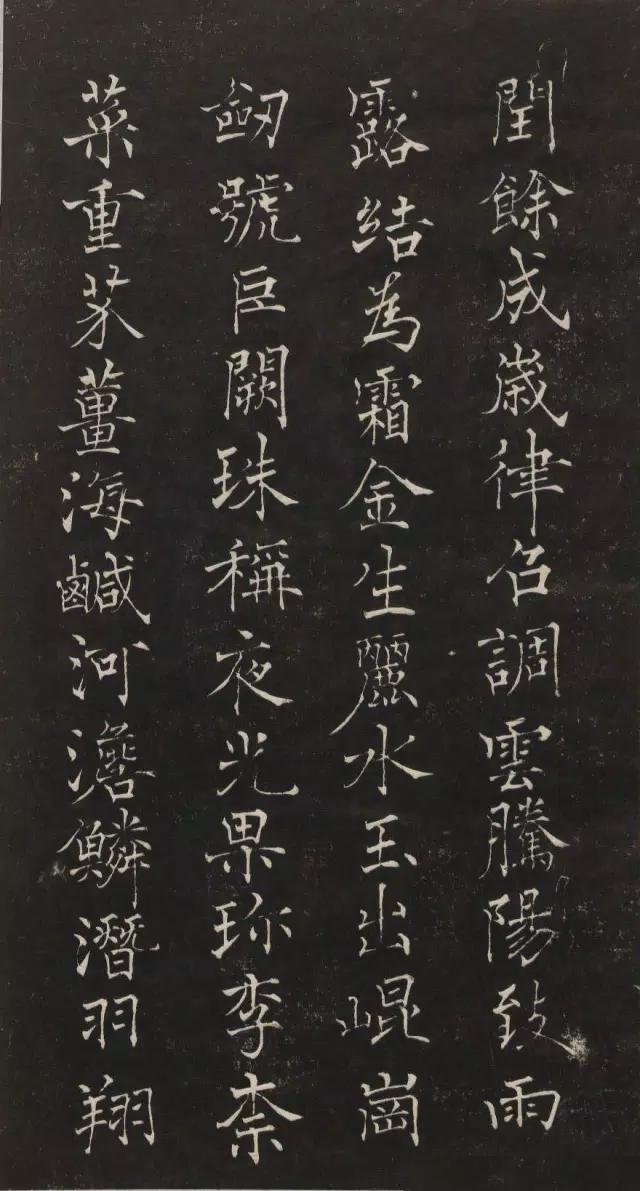 閏餘成歲律召調雲騰陽致雨
露結為霜金生麗水玉出崐崗
劒號巨闕珠稱夜光果珎李柰
菜重芥薑海鹹河澹鱗潛羽翔